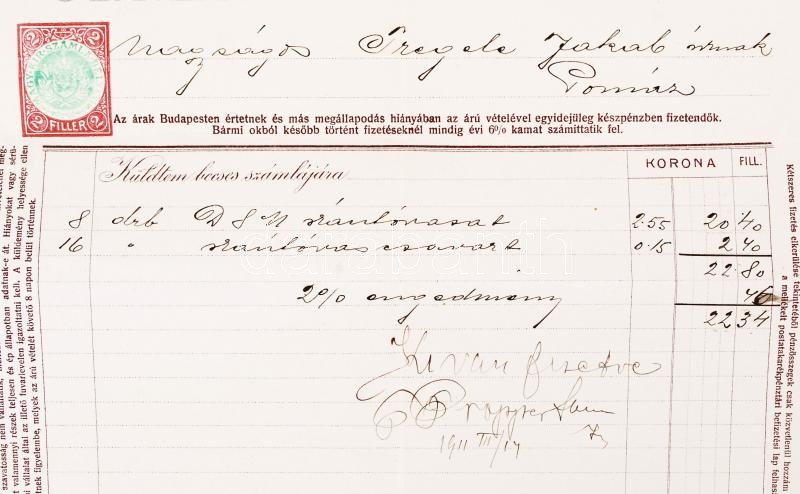 Nagyságos Pregele Jakab úrnak
Pomáz
2 FILLÉR 2
Az árak Budapesten értetnek és más megállapodás hiányában az árú vételével egyidejüleg készpénzben fizetendők.
Bármi okból később történt fizetéseknél mindig évi 6% kamat számíttatik fel.
Küldtem becses számlájára KORONA FILL.
8 drb D 8 N szántóvasat 2·55 20 40
16 " szantóvas csavart 0·15 2 40
22 80
2% engedmény 46
22 34
Ki van fizetve
1911 III/17
szavatosság nem vállaltatik
t valamennyi részek teljesen és ép állapotban adatnak-e át. Hiányokat vagy sérü-
ni vállalat által az illető fuvarlevelen igazoltatni kell. A küldemény helyessége ellen
tnek figyelembe, melyek az árú vételét követő 8 napon belül történnek.
Kétszeres fizetés elkerülése tekintetéből pénzösszegek csak közvetlenül hozzám
a mellékelt postatakarékpénztári befizetési lap felhasz